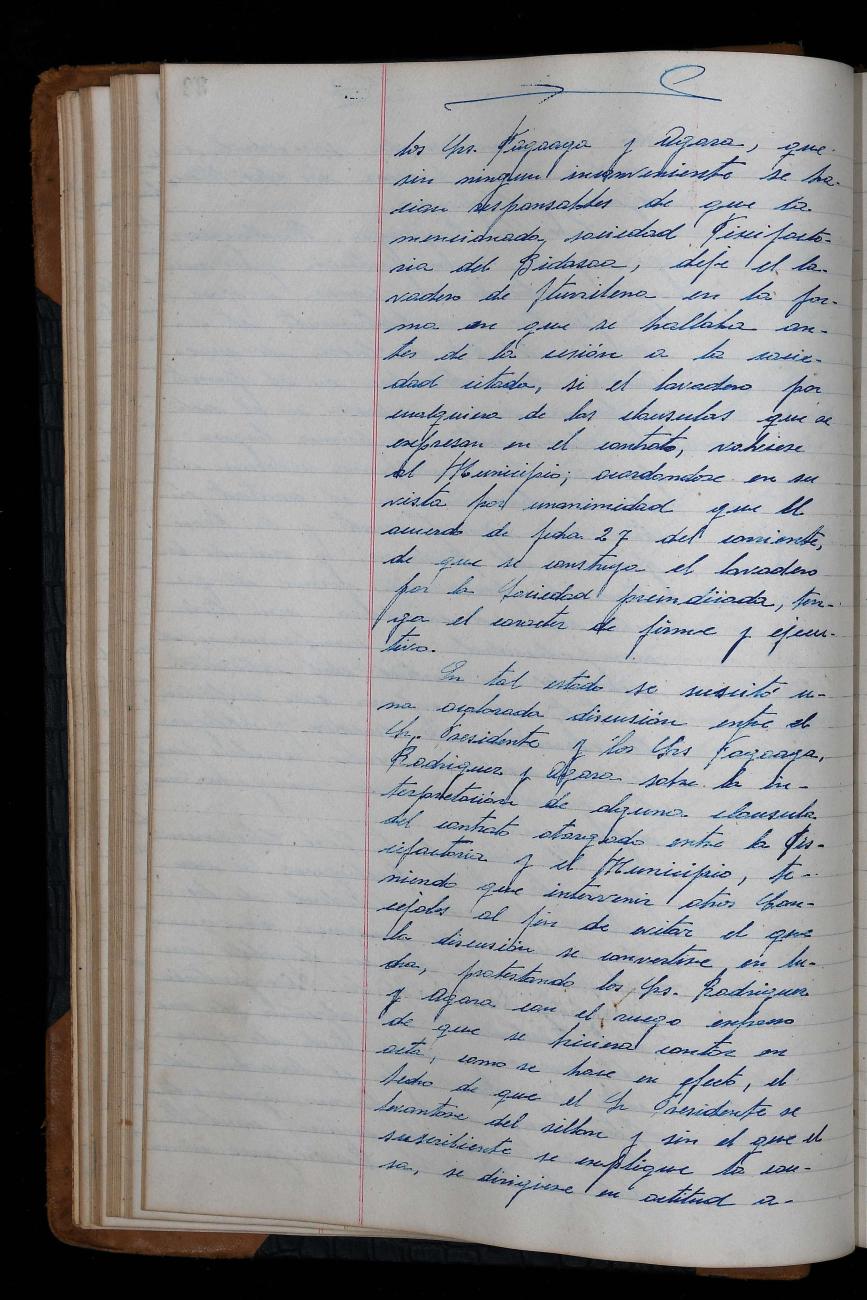 los Srs. Fagoaga y Agara, que
sin ningun inconveniente se ha-
cian responsables de que la
mencionada sociedad Piscifacto-
ria del Bidasoa, deje el la-
vadero de Iturrilena en la for-
ma en que se hallaba an-
tes de la cesión a la socie-
dad citada, si el lavadero por
cualquiera de las clausulas que se
expresan en el contrato, volviese
al Municipio; acordandose en su
vista por unanimidad que el
acuerdo de fecha 27 del corriente,
de que se construya el lavadero
por la Sociedad preindicada, ten-
ga el caracter de firme y ejecu-
tivo.
En tal estado se suscitó u-
na acalorada discusión entre el
Sr. Presidente y los Srs Fagoaga,
Rodriguez y Agara sobre la in-
terpretación de alguna clausula
del contrato otorgado entre la Pis-
cifactoria y el Municipio, te-
niendo que intervenir otros Con-
cejales al fin de evitar el que
la discusión se convertise en lu-
cha, protestando los Srs. Rodriguez
y Agara con el ruego expreso
de que se hiciera constar en
acta, como se hace en efecto, el
hecho de que el Sr Presidente se
levantase del sillon y sin el que el
suscribiente se explique la cau-
sa, se dirigiese en actitud a-